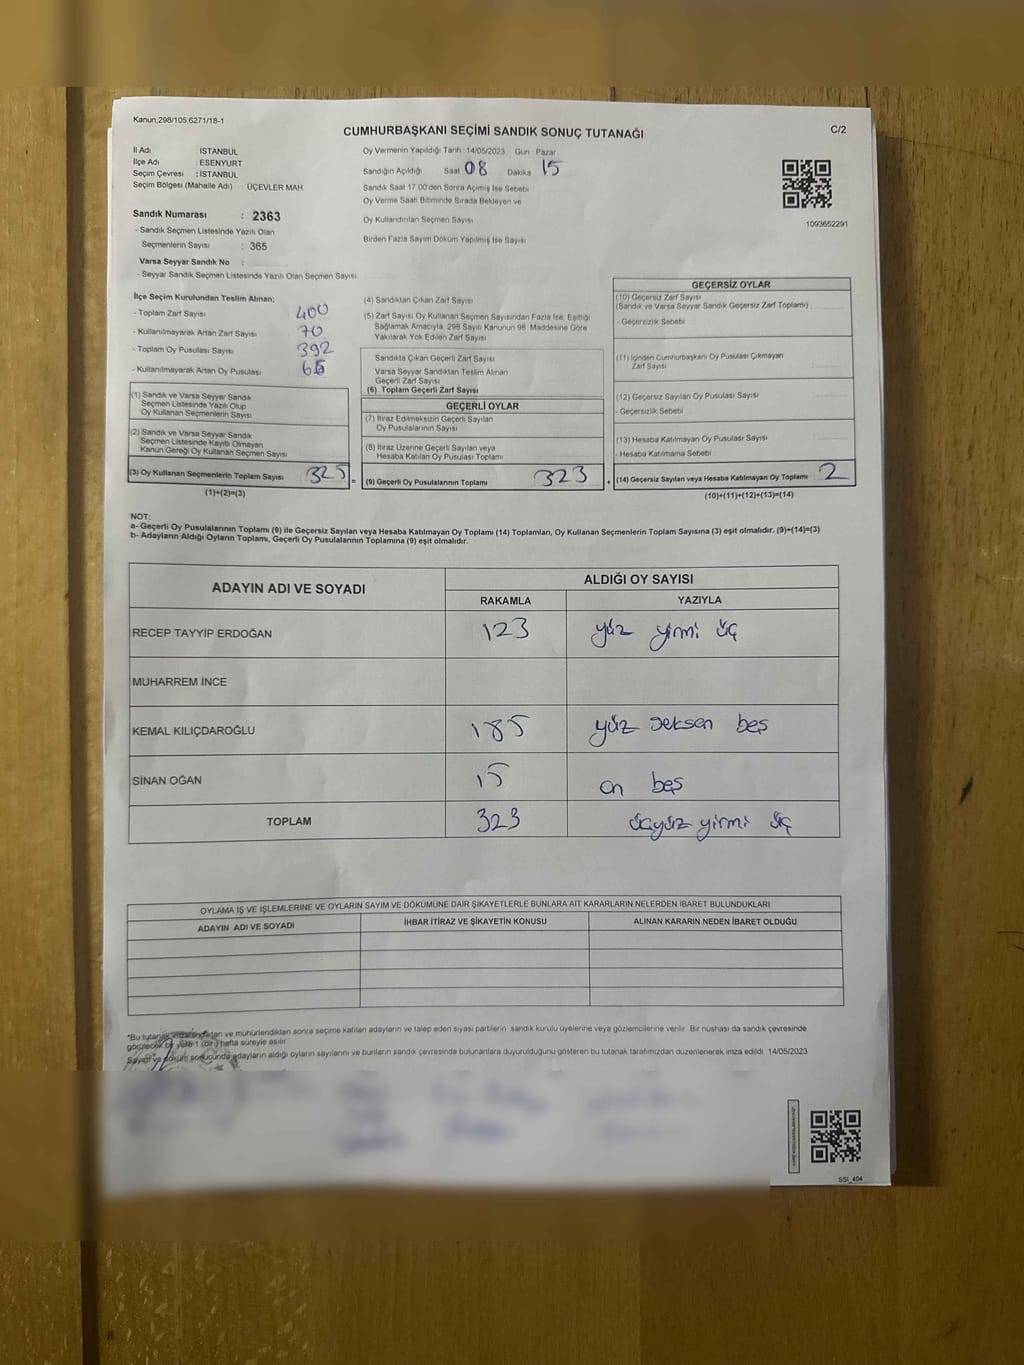 Kanun,298/105,6271/18-1
CUMHURBAŞKANI SEÇİMİ SANDIK SONUÇ TUTANAĞI
C/2
İl Adı : İSTANBUL
İlçe Adı : ESENYURT
Seçim Çevresi : İSTANBUL
Seçim Bölgesi (Mahalle Adı) : ÜÇEVLER MAH
Oy Vermenin Yapıldığı Tarih :14/05/2023 Gün : Pazar
Sandığın Açıldığı Saat 08 Dakika 15
Sandık Saat 17:00'den Sonra Açımış İse Sebebi
Oy Verme Saati Bitiminde Sırada Bekleyen ve
Oy Kullandırılan Seçmen Sayısı
Birden Fazla Sayım Döküm Yapılmış İse Sayısı
1093652291
Sandık Numarası : 2363
- Sandık Seçmen Listesinde Yazılı Olan
Seçmenlerin Sayısı : 365
Varsa Seyyar Sandık No :
- Seyyar Sandık Seçmen Listesinde Yazılı Olan Seçmen Sayısı
İlçe Seçim Kurulundan Teslim Alınan;
- Toplam Zarf Sayısı 400
- Kullanılmayarak Artan Zarf Sayısı 70
- Toplam Oy Pusulası Sayısı 392
- Kullanılmayarak Artan Oy Pusulası
(1) Sandık ve Varsa Seyyar Sandık
Seçmen Listesinde Yazılı Olup
Oy Kullanan Seçmenlerin Sayısı
(2) Sandık ve Varsa Seyyar Sandık
Seçmen Listesinde Kayıtlı Olmayan
Kanun Gereği Oy Kullanan Seçmen Sayısı
(3) Oy Kullanan Seçmenlerin Toplam Sayısı 325
(1)+(2)=(3)
(4) Sandıktan Çıkan Zarf Sayısı
(5) Zarf Sayısı Oy Kullanan Seçmen Sayısından Fazla İse, Eşitliği
Sağlamak Amacıyla, 298 Sayılı Kanunun 98. Maddesine Göre
Yakılarak Yok Edilen Zarf Sayısı
Sandıkta Çıkan Geçerli Zarf Sayısı
Varsa Seyyar Sandıktan Teslim Alınan
Geçerli Zarf Sayısı
(6) Toplam Geçerli Zarf Sayısı
GEÇERLİ OYLAR
(7) İtiraz Edilmeksizin Geçerli Sayılan
Oy Pusulalarının Sayısı
(8) İtiraz Üzerine Geçerli Sayılan veya
Hesaba Katılan Oy Pusulası Toplamı
= (9) Geçerli Oy Pusulalarının Toplamı 323
GEÇERSİZ OYLAR
(10) Geçersiz Zarf Sayısı
(Sandık ve Varsa Seyyar Sandık Geçersiz Zarf Toplamı)
- Geçersizlik Sebebi
(11) İçinden Cumhurbaşkanı Oy Pusulası Çıkmayan
Zarf Sayısı
(12) Geçersiz Sayılan Oy Pusulası Sayısı
- Geçersizlik Sebebi
(13) Hesaba Katılmayan Oy Pusulası Sayısı
- Hesaba Katılmama Sebebi
+ (14) Geçersiz Sayılan veya Hesaba Katılmayan Oy Toplamı 2
(10)+(11)+(12)+(13)=(14)
NOT:
a- Geçerli Oy Pusulalarının Toplamı (9) ile Geçersiz Sayılan veya Hesaba Katılmayan Oy Toplamı (14) Toplamları, Oy Kullanan Seçmenlerin Toplam Sayısına (3) eşit olmalıdır. (9)+(14)=(3)
b- Adayların Aldığı Oyların Toplamı, Geçerli Oy Pusulalarının Toplamına (9) eşit olmalıdır.
ADAYIN ADI VE SOYADI
ALDIĞI OY SAYISI
RAKAMLA YAZIYLA
RECEP TAYYİP ERDOĞAN 123 yüz yirmi üç
MUHARREM İNCE
KEMAL KILIÇDAROĞLU 185 yüz seksen beş
SİNAN OĞAN 15 on beş
TOPLAM 323 üçyüz yirmi üç
OYLAMA İŞ VE İŞLEMLERİNE VE OYLARIN SAYIM VE DÖKÜMÜNE DAİR ŞİKAYETLERLE BUNLARA AİT KARARLARIN NELERDEN İBARET BULUNDUKLARI
ADAYIN ADI VE SOYADI İHBAR İTİRAZ VE ŞİKAYETİN KONUSU ALINAN KARARIN NEDEN İBARET OLDUĞU
*Bu tutanak imzalandıktan ve mühürlendikten sonra seçime katılan adayların ve talep eden siyasi partilerin sandık kurulu üyelerine veya gözlemcilerine verilir. Bir nüshası da sandık çevresinde
görülecek bir yere 1 (bir) hafta süreyle asılır.
Sayım ve döküm sonucunda adayların aldığı oyların sayılarını ve bunların sandık çevresinde bulunanlara duyurulduğunu gösteren bu tutanak tarafımızdan düzenlenerek imza edildi. 14/05/2023
SSI_404